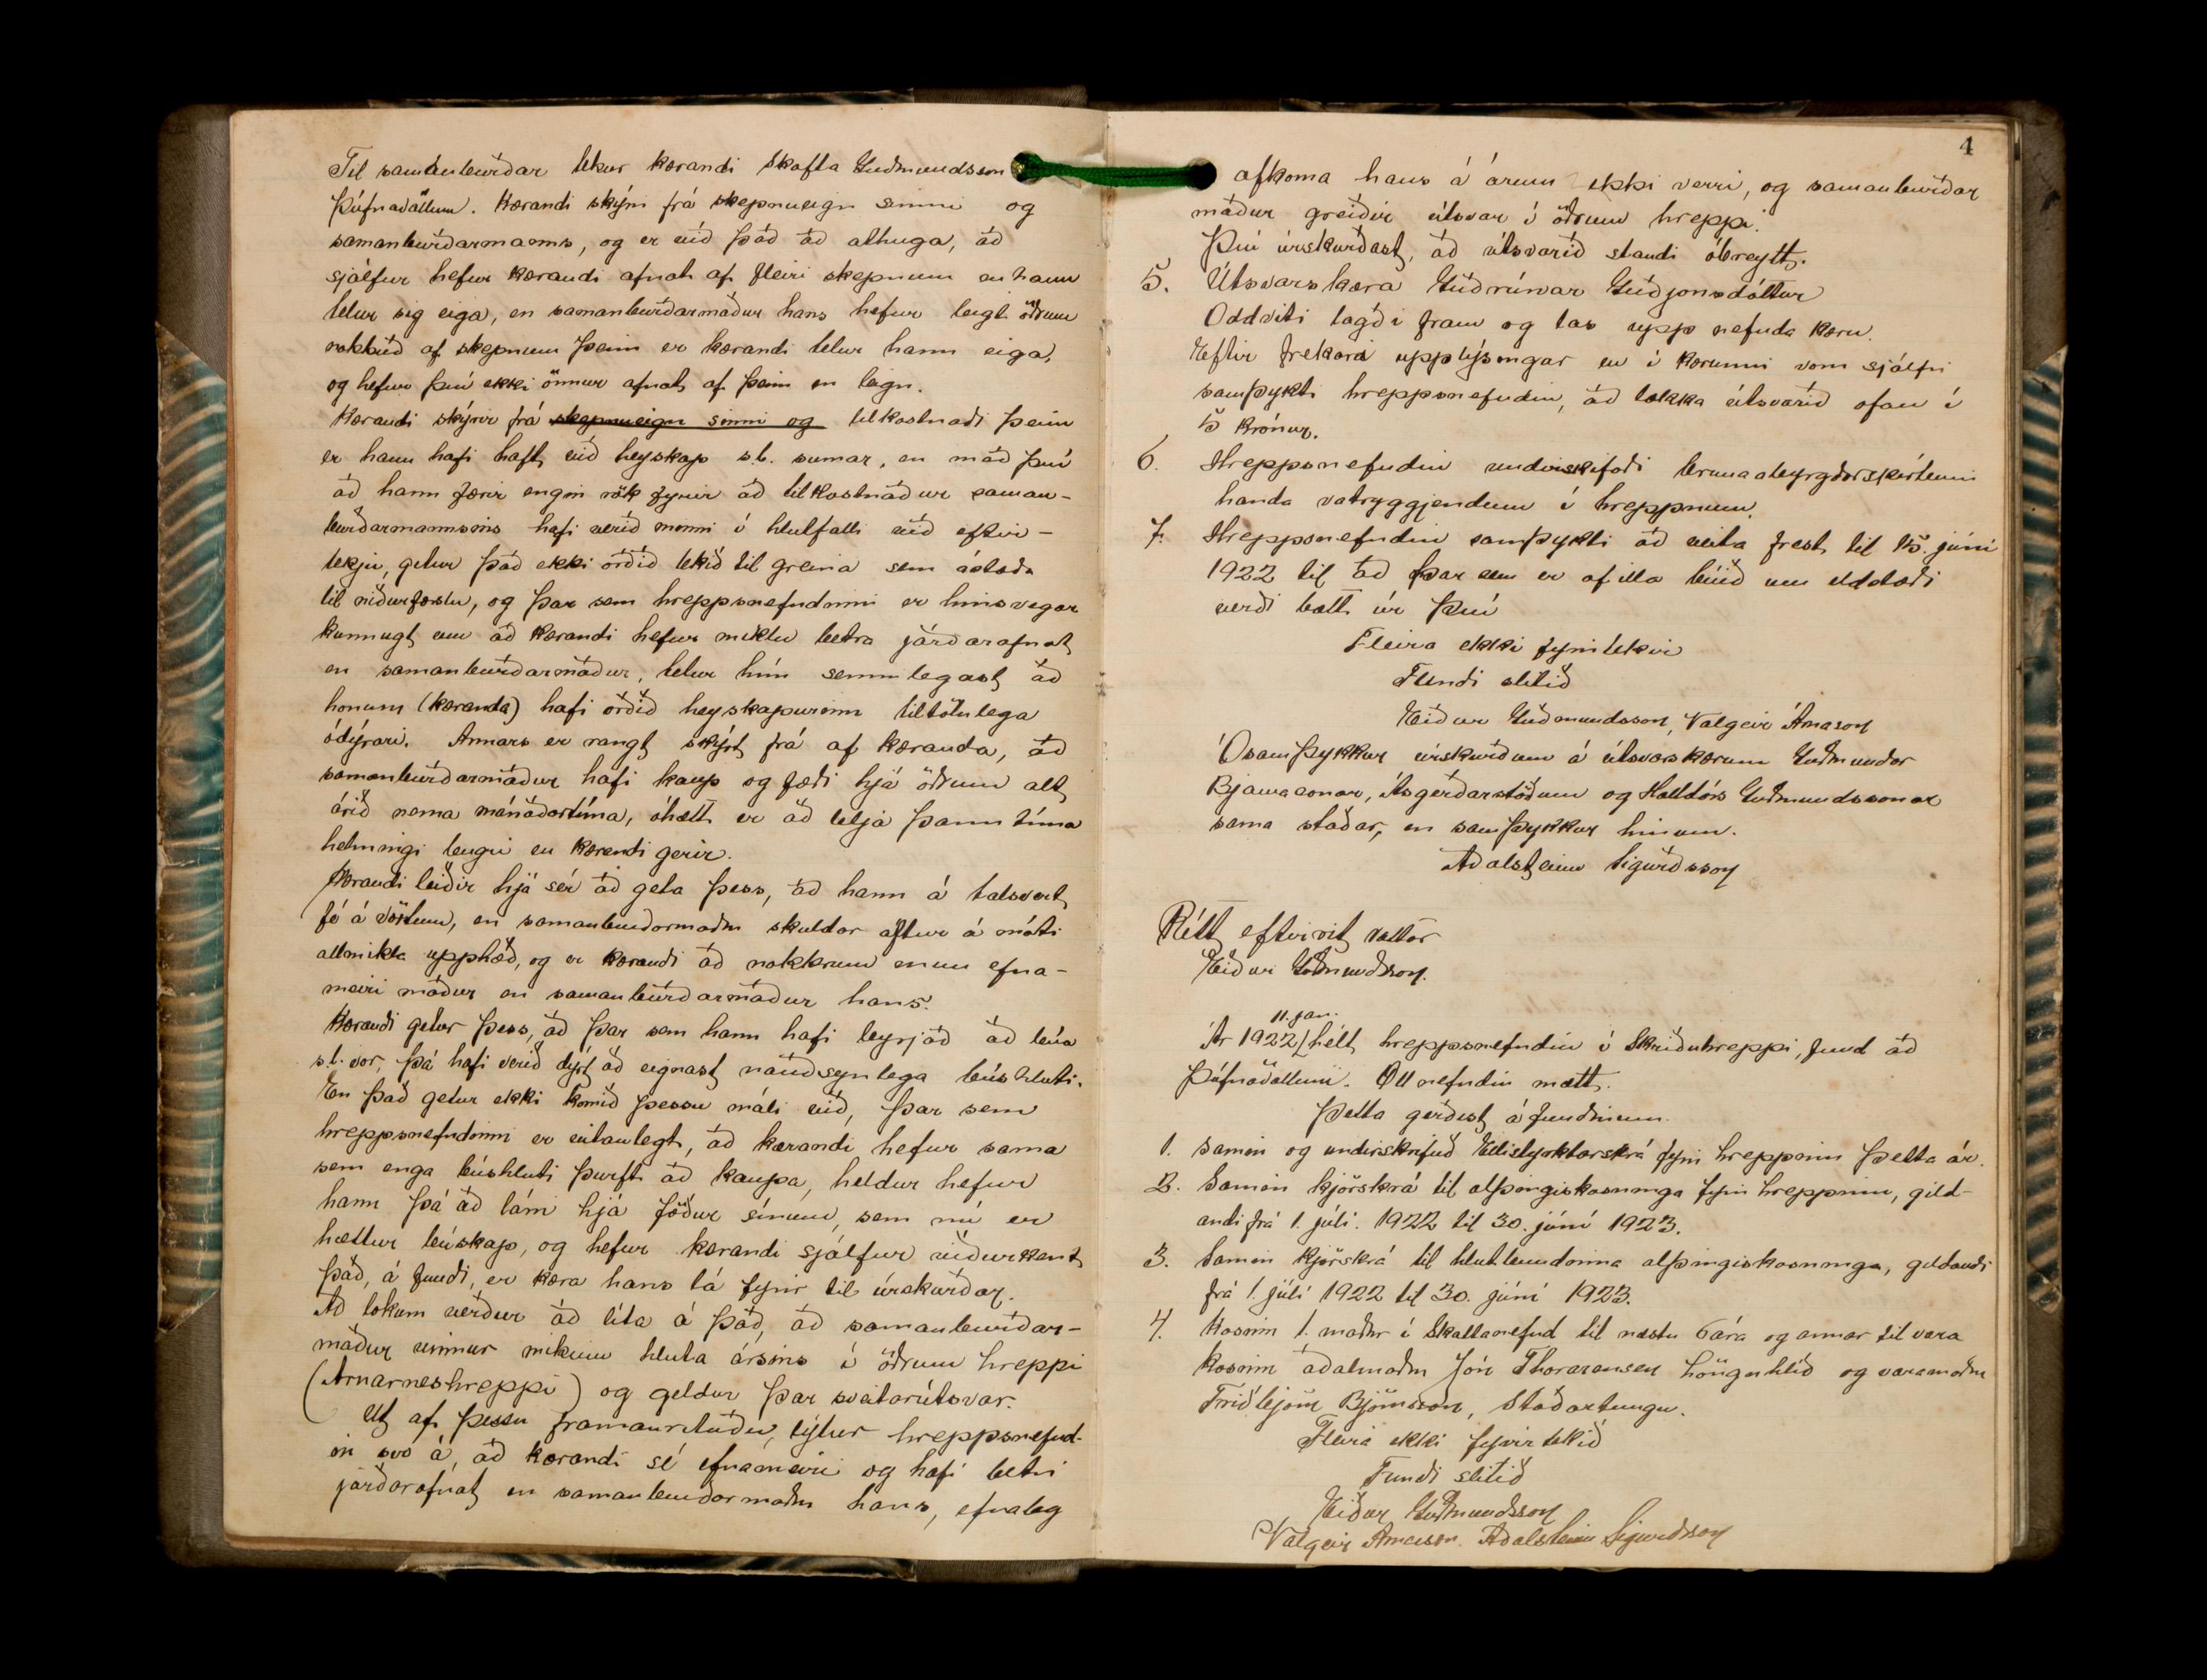 Til samanburðar tekur kærandi Skafta Guðmundsson
Þúfnavöllum. Kærandi skýrir frá skepnueign sinni og
samanburðarmanns, og er við það að athuga, að
sjálfur hefur kærandi afnot af fleiri skepnum en hann
telur sig eiga, en samanburðarmaður hans hefur leigt öðrum
nokkuð af skepnum þeim er kærandi telur hann eiga,
og hefur því ekki önnur afnot af þeim en leigu.
Kærandi skýrir frá skepnueign sinni og tilkostnaði þeim
er hann hafi haft við heyskap s.l. sumar, en með því
að hann færir engin rök fyrir að tilkostnaður saman-
burðarmannsins hafi verið minni í hlutfalli við eftir-
tekju, getur það ekki orðið tekið til greina sem ástæða
til niðurfærslu, og þar sem hreppsnefndinni er hinsvegar
kunnugt um að kærandi hefur miklu betra jarðarafnot
en samanburðarmaður, telur hún sennilegast að
honum (kæranda) hafi orðið heyskapurinn tiltölulega
ódýrari. Annars er rangt skýrt frá af kæranda, að
samanburðarmaður hafi kaup og fæði hjá öðrum alt
árið nema mánaðartíma, óhætt er að telja þann tíma
helmingi lengri en kærandi gerir.
Kærandi leiðir hjá sér að geta þess, að hann á talsvert
fé á vöxtum, en samanburðarmaðr skuldar aftur á móti
allmikla upphæð, og er kærandi að nokkrum mun efna-
meiri maður en samanburðarmaður hans.
Kærandi getur þess, að þar sem hann hafi byrjað að búa
s.l. vor, þá hafi verið dýrt að eignast nauðsynlega búshluti.
En það getur ekki komið þessu máli við, þar sem
hreppsnefndinni er vitanlegt, að kærandi hefur sama
sem enga búshluti þurft að kaupa, heldur hefur
hann þá að láni hjá föður sínum, sem nú er
hættur búskap, og hefur kærandi sjálfur viðurkent
það, á fundi, er kæra hans lá fyrir til úrskurðar.
Að lokum verður að líta á það, að samanburðar-
maður vinnur mikinn hluta ársins í öðrum hreppi
(Arnarneshreppi) og geldur þar sveitarútsvar.
Út af þessu framanritaðu, lýtur hreppsnefnd-
in svo á, að kærandi sé efnameiri og hafi betri
jarðarafnot en samanburðarmaðr hans, efnaleg
4
afkoma hans á árinu ekki verri, og samanburðar
maður greiðir útsvar í öðrum hreppi.
Því úrskurðast, að útsvarið standi óbreytt.
5. Útsvarskæra Guðrúnar Guðjonsdóttur
Oddviti lagði fram og las upp nefnda kæru.
Eftir frekari upplýsingar en í kærunni vom sjálfri
samþykti hreppsnefndin, að lækka útsvarið ofan í
5 krónur.
6. Hreppsnefndin undirskifaði brunaabyrgðarskírteini
handa vatryggjendum í hreppnum.
7. Hreppsnefndin samþykti að veita frest til 15. júní
1922 til að þar sem er of illa búið um eldstæði
verði bætt úr því
Fleira ekki fyrirtekið
Fundi slitið
Eiður Guðmundsson, Valgeir Árnason
Ósamþykkur úrskurðum á útsvarskærum Guðmundar
Bjarnasonar, Ásgerðarstöðum og Halldórs Guðmundssonar
sama staðar, en samþykkur hinum.
Aðalsteinn Sigurðsson
Rétt eftirrit vottar
Eiður Guðmundsson.
11. jan.
Ár 1922 hélt hreppsnefndin í Skriðuhreppi, fund að
Þúfnavöllum. Öll nefndin mætt.
Þetta gerðist á fundinum.
1. Samin og undirskrifuð Ellistyrktarskrá fyrir hreppinn þetta ár.
2. Samin kjörskrá til alþingiskosninga fyrir hreppinn, gild-
andi frá 1. júlí. 1922 til 30. júní 1923.
3. Samin kjörskrá til hlutbundinna alþingiskosninga, gildandi
frá 1. júlí 1922 til 30. júní 1923.
4. Kosinn 1. maðr í Skattanefnd til næstu 6 ára og annar til vara
kosinn aðalmaðr Jón Thorarensen Lönguhlíð og varamaðr
Friðbjörn Björnsson, Staðartungu.
Fleira ekki fyrirtekið
Fundi slitið
Eiður Guðmundsson
Valgeir Árnason. Aðalsteinn Sigurðsson